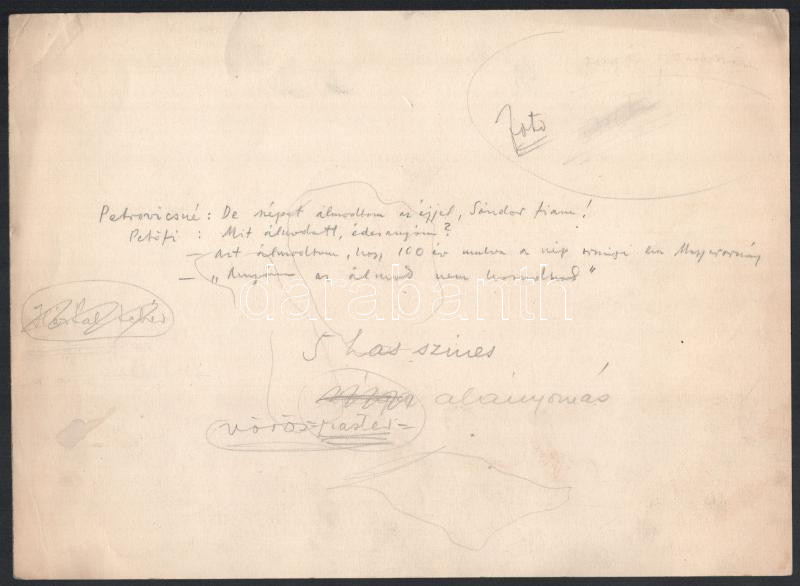 Foto
Petrovicsné: De szépet álmodtam az éjjel, Sándor fiam!
Petőfi: Mit álmodott, édesanyám?
— azt álmodtam, hogy 100 év mulva a nép országa lesz Magyarország
— „Anyám az álmod nem hazudhad"
darabanth
5 has szines
alányomás
vörös raszter